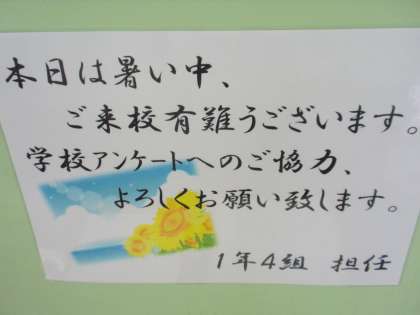 本日は暑い中、
ご来校有難うございます。
学校アンケートへのご協力、
よろしくお願い致します。
1年4組 担任